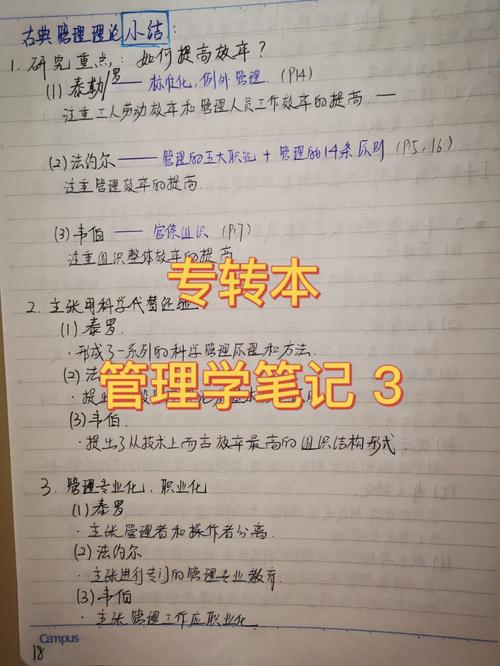 古典管理理论小结:
1. 研究重点: 如何提高效率?
(1) 泰勒/罗 —— 标准化, 例外管理. (P14)
注重工人劳动效率和管理人员工作效率的提高. —
(2) 法约尔 —— 管理的五大职能 + 管理的14条原则 (P15, 16)
注重管理效率的提高.
(3) 韦伯 —— 官僚组织 (P17)
注重组织整体效率的提高
专转本
2. 主张用科学代替经验.
(1) 泰罗.
· 形成了一系列的科学管理原理和方法.
(2) 法
管理学笔记 3
· 提出
(3) 韦伯
· 提出了从技术上而言效率最高的组织结构形式.
3. 管理专业化、职业化
(1) 泰罗
· 主张管理者和操作者分离.
(2) 法约尔
· 主张进行专门的管理专业教育.
(3) 韦伯
· 主张管理工作应职业化.
Campus
18